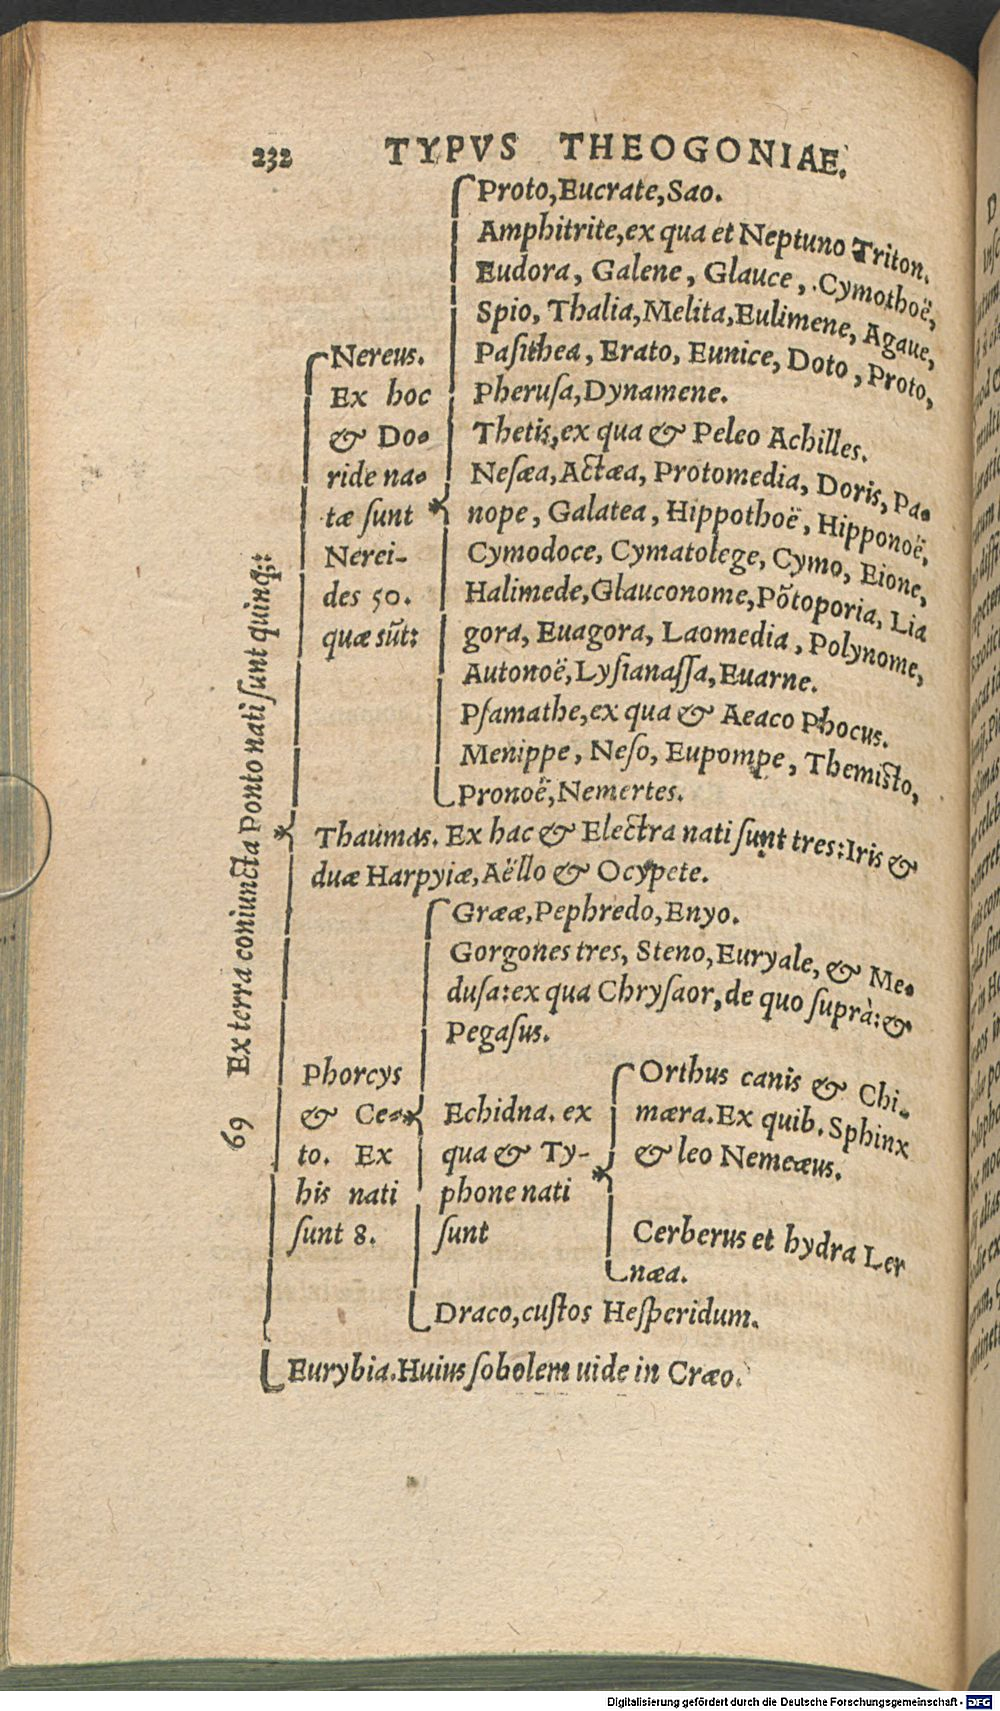 232 TYPVS THEOGONIAE.
69 Ex terra coniuncta Ponto nati ſunt quinq;:
Nereus.
Ex hoc
& Do⸗
ride na⸗
tæ ſunt
Nerei-
des 50.
quæ sūt:
Proto, Eucrate, Sao.
Amphitrite, ex qua et Neptuno Triton.
Eudora, Galene, Glauce, Cymothoë,
Spio, Thalia, Melita, Eulimene, Agaue,
Paſithea, Erato, Eunice, Doto, Proto,
Pheruſa, Dynamene.
Thetis, ex qua & Peleo Achilles.
Neſæa, Actæa, Protomedia, Doris, Pa⸗
nope, Galatea, Hippothoë, Hipponoë,
Cymodoce, Cymatolege, Cymo, Eione,
Halimede, Glauconome, Põtoporia, Lia
gora, Euagora, Laomedia, Polynome,
Autonoë, Lyſianaſſa, Euarne.
Pſamathe, ex qua & Aeaco Phocus.
Menippe, Neſo, Eupompe, Themiſto,
Pronoë, Nemertes.
Thaumas. Ex hac & Electra nati ſunt tres: Iris &
duæ Harpyiæ, Aëllo & Ocypete.
Phorcys
& Ce⸗
to. Ex
his nati
ſunt 8.
Grææ, Pephredo, Enyo.
Gorgones tres, Steno, Euryale, & Me⸗
duſa: ex qua Chryſaor, de quo ſuprà: &
Pegaſus.
Echidna. ex
qua & Ty-
phone nati
ſunt
Orthus canis & Chi⸗
mæra. Ex quib. Sphinx
& leo Nemeæus.
Cerberus et hydra Ler
næa.
Draco, cuſtos Heſperidum.
Eurybia. Huius ſobolem uide in Cræo.
Digitalisierung gefördert durch die Deutsche Forschungsgemeinschaft - DFG